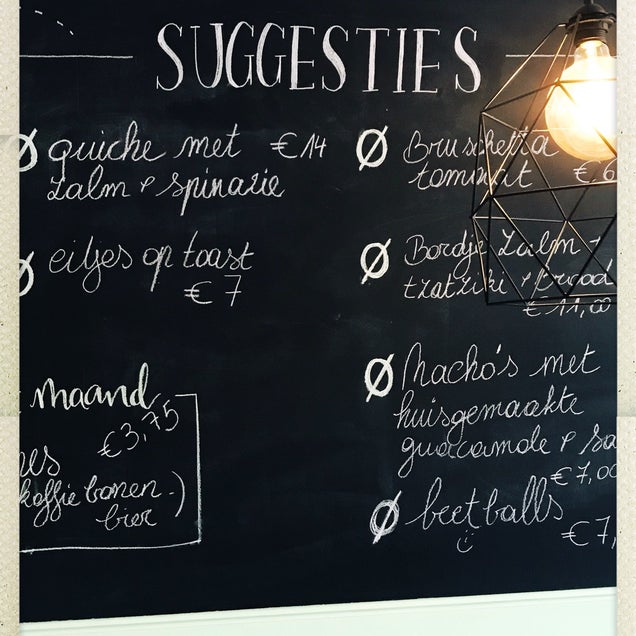 SUGGESTIES
Ø quiche met €14
zalm & spinazie
Ø eitjes op toast
€ 7
maand
€3,75
koffie bonen.)
bier
Ø Bruschetta
tomaat € 6
Ø Bordje Zalm +
tzatziki & brood
€ 11,00
Ø Nacho's met
huisgemaakte
guacamole & sa
€ 7,00
Ø beetballs
€ 7,